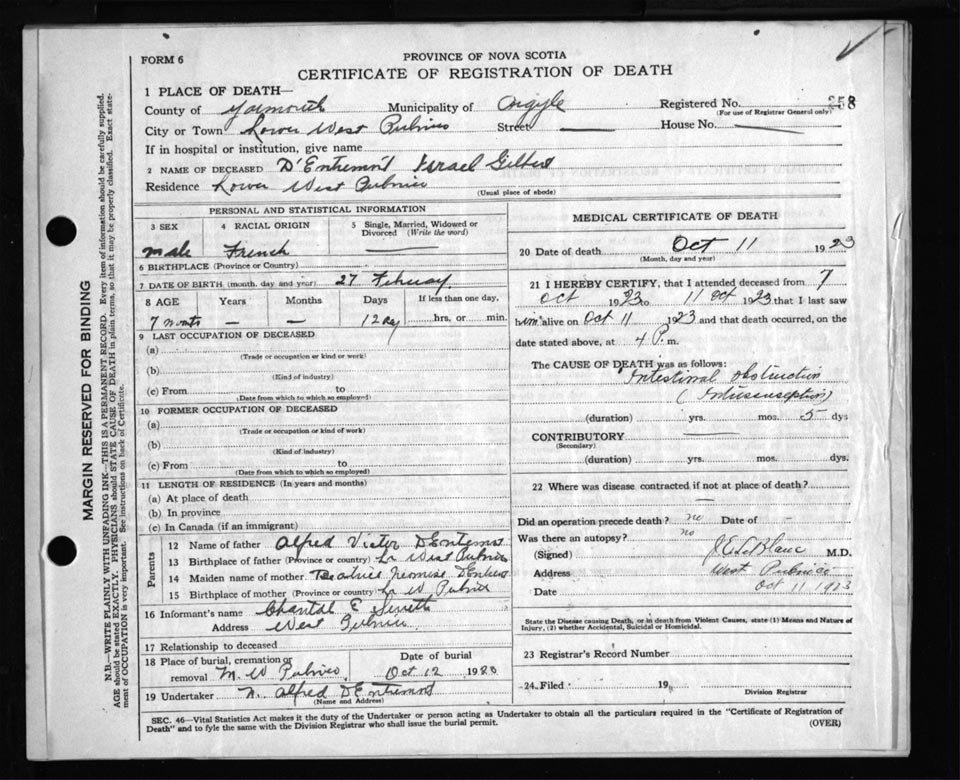 FORM 6
PROVINCE OF NOVA SCOTIA
CERTIFICATE OF REGISTRATION OF DEATH
1 PLACE OF DEATH—
County of Yarmouth Municipality of Argyle Registered No. 358
(For use of Registrar General only)
City or Town Lower West Pubnico Street — House No. —
If in hospital or institution, give name
2 NAME OF DECEASED D'Entremont Israel Gilbert
Residence Lower West Pubnico
(Usual place of abode)
PERSONAL AND STATISTICAL INFORMATION
3 SEX 4 RACIAL ORIGIN 5 Single, Married, Widowed or Divorced (Write the word)
male French —
6 BIRTHPLACE (Province or Country)
7 DATE OF BIRTH (month, day and year) 27 February
8 AGE Years Months Days If less than one day,
7 months — — 12 day hrs. or min.
9 LAST OCCUPATION OF DECEASED
(a)
(Trade or occupation or kind or work)
(b)
(Kind of industry)
(c) From to
(Date from which to which so employed)
10 FORMER OCCUPATION OF DECEASED
(a)
(Trade or occupation or kind of work)
(b)
(Kind of industry)
(c) From to
(Date from which to which so employed)
11 LENGTH OF RESIDENCE (In years and months)
(a) At place of death
(b) In province
(c) In Canada (if an immigrant)
Parents
12 Name of father Alfred Victor D'Entremont
13 Birthplace of father (Province or country) Lr West Pubnico
14 Maiden name of mother Beatrice D'Entremont
15 Birthplace of mother (Province or country) Lr W Pubnico
16 Informant's name Chantal E
Address West Pubnico
17 Relationship to deceased
18 Place of burial, cremation or removal M. W Pubnico
Date of burial
Oct 12 1923
19 Undertaker N. Alfred D'Entremont
(Name and Address)
MEDICAL CERTIFICATE OF DEATH
20 Date of death Oct 11 1923
(Month, day and year)
21 I HEREBY CERTIFY, that I attended deceased from 7
Oct 1923 to 11 Oct 1923 that I last saw
him alive on Oct 11 1923 and that death occurred, on
date stated above, at 4 P. m.
The CAUSE OF DEATH was as follows:
Intestinal obstruction
(Intussusception)
(duration) yrs. mos. 5 dys
CONTRIBUTORY —
(Secondary)
(duration) yrs. mos. dys.
22 Where was disease contracted if not at place of death?
—
Did an operation precede death? no Date of -
Was there an autopsy? no
(Signed) J E LeBlanc M.D.
Address West Pubnico
Date Oct 11 1923
State the Disease causing Death, or in death from Violent Causes, state (1) Means and Nature of
Injury, (2) whether Accidental, Suicidal or Homicidal.
23 Registrar's Record Number
24. Filed 19
Division Registrar
SEC. 46—Vital Statistics Act makes it the duty of the Undertaker or person acting as Undertaker to obtain all the particulars required in the "Certificate of Registration of
Death" and to fyle the same with the Division Registrar who shall issue the burial permit.
(OVER)
MARGIN RESERVED FOR BINDING
N.B.—WRITE PLAINLY WITH UNFADING INK—THIS IS A PERMANENT RECORD. Every item of information should be carefully supplied.
AGE should be stated EXACTLY, PHYSICIANS should STATE CAUSE OF DEATH in plain terms, so that it may be properly classified. Exact statement of OCCUPATION is very important. See instructions on back of Certificate.